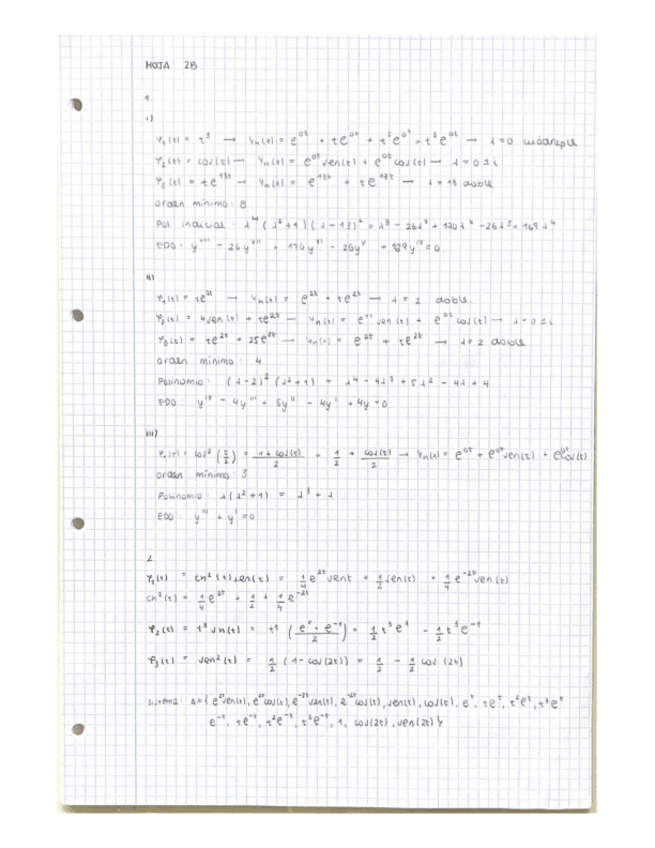 HOJA 2B
1.
i)
φ₁(t) = t³ → Yₕ(t) = e^0t + te^0t + t²e^0t + t³e^0t → λ=0 cuádruple
φ₂(t) = cos(t) → Yₕ(t) = e^0t sen(t) + e^0t cos(t) → λ=0±i
φ₃(t) = te^13t → Yₕ(t) = e^13t + te^13t → λ=13 doble
orden mínimo: 8
Pol indicial: λ⁴(λ²+1)(λ-13)² = λ⁸ - 26λ⁷ + 170λ⁶ - 26λ⁵ + 169λ⁴
EDO: y^VIII - 26y^VII + 170y^VI - 26y^V + 169y^IV = 0
ii)
φ₁(t) = te^2t → Yₕ(t) = e^2t + te^2t → λ=2 doble
φ₂(t) = 4sen(t) + te^2t → Yₕ(t) = e^0t sen(t) + e^0t cos(t) → λ=0±i
φ₃(t) = te^2t + 25e^2t → Yₕ(t) = e^2t + te^2t → λ=2 doble
orden mínimo: 4
Polinomio: (λ-2)²(λ²+1) = λ⁴ - 4λ³ + 5λ² - 4λ + 4
EDO y^IV - 4y''' + 5y'' - 4y' + 4y = 0
iii)
φ₁(t) = cos²(t/2) = (1+cos(t))/2 = 1/2 + cos(t)/2 → Yₕ(t) = e^0t + e^0t sen(t) + e^0t cos(t)
orden mínimo: 3
Polinomio: λ(λ²+1) = λ³ + λ
EDO: y''' + y' = 0
2.
φ₁(t) = ch²(t) sen(t) = 1/4 e^2t sent + 1/2 sen(t) + 1/4 e^-2t sen(t)
ch²(t) = 1/4 e^2t + 1/2 + 1/4 e^-2t
φ₂(t) = t³ sh(t) = t³ ((e^t - e^-t)/2) = 1/2 t³e^t - 1/2 t³e^-t
φ₃(t) = sen²(t) = 1/2 (1-cos(2t)) = 1/2 - 1/2 cos(2t)
sistema: A = { e^2t sen(t), e^2t cos(t), e^-2t sen(t), e^-2t cos(t), sen(t), cos(t), e^t, te^t, t²e^t, t³e^t
e^-t, te^-t, t²e^-t, t³e^-t, 1, cos(2t), sen(2t) }